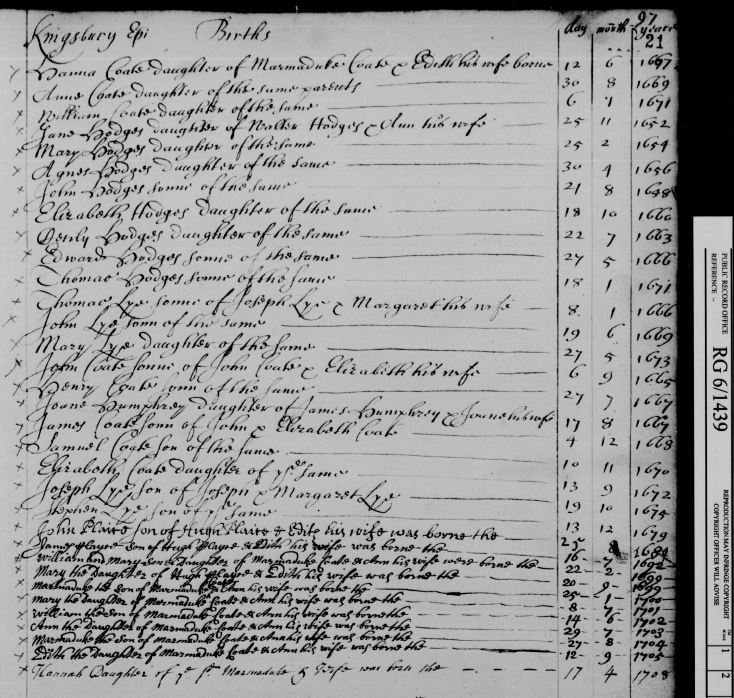 97
Kingsbury Epi Births day month year
21
Hanna Coate daughter of Marmaduke Coate & Edith his wife borne 12 6 1667
Anne Coate daughter of the same parents 30 8 1669
William Coate daughter of the same 6 1 1671
Jane Hodges daughter of Walter Hodges & Ann his wife 25 11 1652
Mary Hodges daughter of the same 25 2 1654
Agnes Hodges daughter of the same 30 4 1656
John Hodges sonne of the same 21 8 1658
Elizabeth Hodges daughter of the same 18 10 1660
Hodges daughter of the same 22 7 1663
Edward Hodges sonne of the same 27 5 1666
Thomas Hodges sonne of the same 18 1 1671
Thomas Lye sonne of Joseph Lye & Margaret his wife 8 1 1666
John Lye sonn of the same 19 6 1669
Mary Lye daughter of the same 27 5 1673
John Coate sonne of John Coate & Elizabeth his wife 6 9 1665
Henry Coate sonn of the same 27 7 1667
Joane Humphrey daughter of James Humphrey & Joane his wife 17 8 1667
James Coate sonn of John & Elizabeth Coate 4 12 1668
Samuel Coate son of the same
Elizabeth Coate daughter of ye same 10 11 1670
Joseph Lye son of Joseph & Margaret Lye 13 9 1672
Stephen Lye son of ye same 19 10 1675
John Plaire son of Hugh Plaire & Edith his wife was borne the 13 12 1679
James Playre Son of Hugh Playre & Edith his wife was borne the 25 8 1684
William and Mary Son & Daughter of Marmaduke Coate & Ann his wife were borne the 16 7 1692
Mary the Daughter of Hugh Playre & Edith his wife was borne the 22 2 1699
Marmaduke the Son of Marmaduke Coate & Ann his wife was borne the 20 9 1699
Mary the Daughter of Marmaduke Coate & Ann his wife was borne the 25 1 1700
William the Son of Marmaduke Coate & Ann his wife was borne the 8 7 1701
Ann the Daughter of Marmaduke Coate & Ann his wife was borne the 14 6 1702
Marmaduke the Son of Marmaduke Coate & Ann his wife was borne the 29 7 1703
Edith the Daughter of Marmaduke Coate & Ann his wife was borne the 27 8 1704
12 9 1705
Hannah Daughter of ye sd Marmaduke & Wife was born the 17 4 1708
PUBLIC RECORD OFFICE
REFERENCE :-
RG 6/1439
REPRODUCTION MAY INFRINGE COPYRIGHT
COPYRIGHT OFFICER WILL ADVISE
1 2